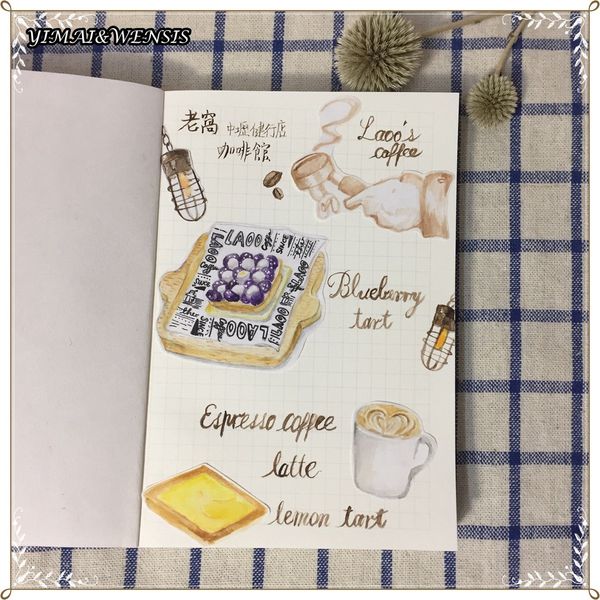 YIMAI&WENSIS
老窩 中壢健行店
咖啡館
Laoo's
coffee
LAOO
LAOO
Blueberry
tart
Espresso coffee
latte
lemon tart